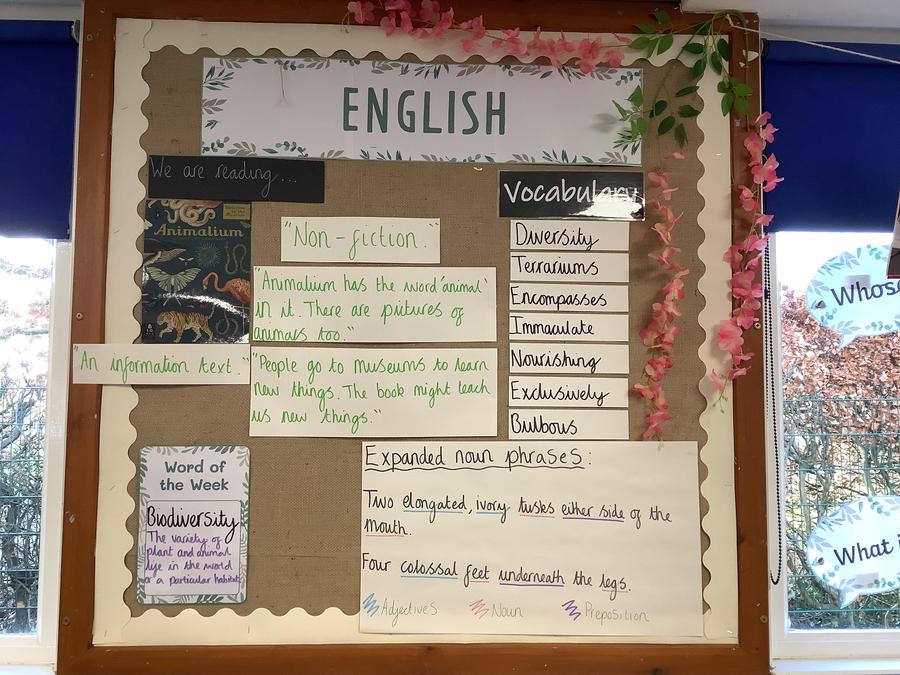 ENGLISH
We are reading...
Animalium
"Non-fiction."
"Animalium has the word 'animal'
in it. There are pictures of
animals too."
"An information text."
"People go to museums to learn
new things. The book might teach
us new things."
Vocabulary
Diversity
Terrariums
Encompasses
Immaculate
Nourishing
Exclusively
Bulbous
Word of
the Week
Biodiversity
The variety of
plant and animal
life in the world
or a particular habitat
Expanded noun phrases:
Two elongated, ivory tusks either side of the
mouth.
Four colossal feet underneath the legs.
Adjectives
Noun
Preposition
Whose
What i